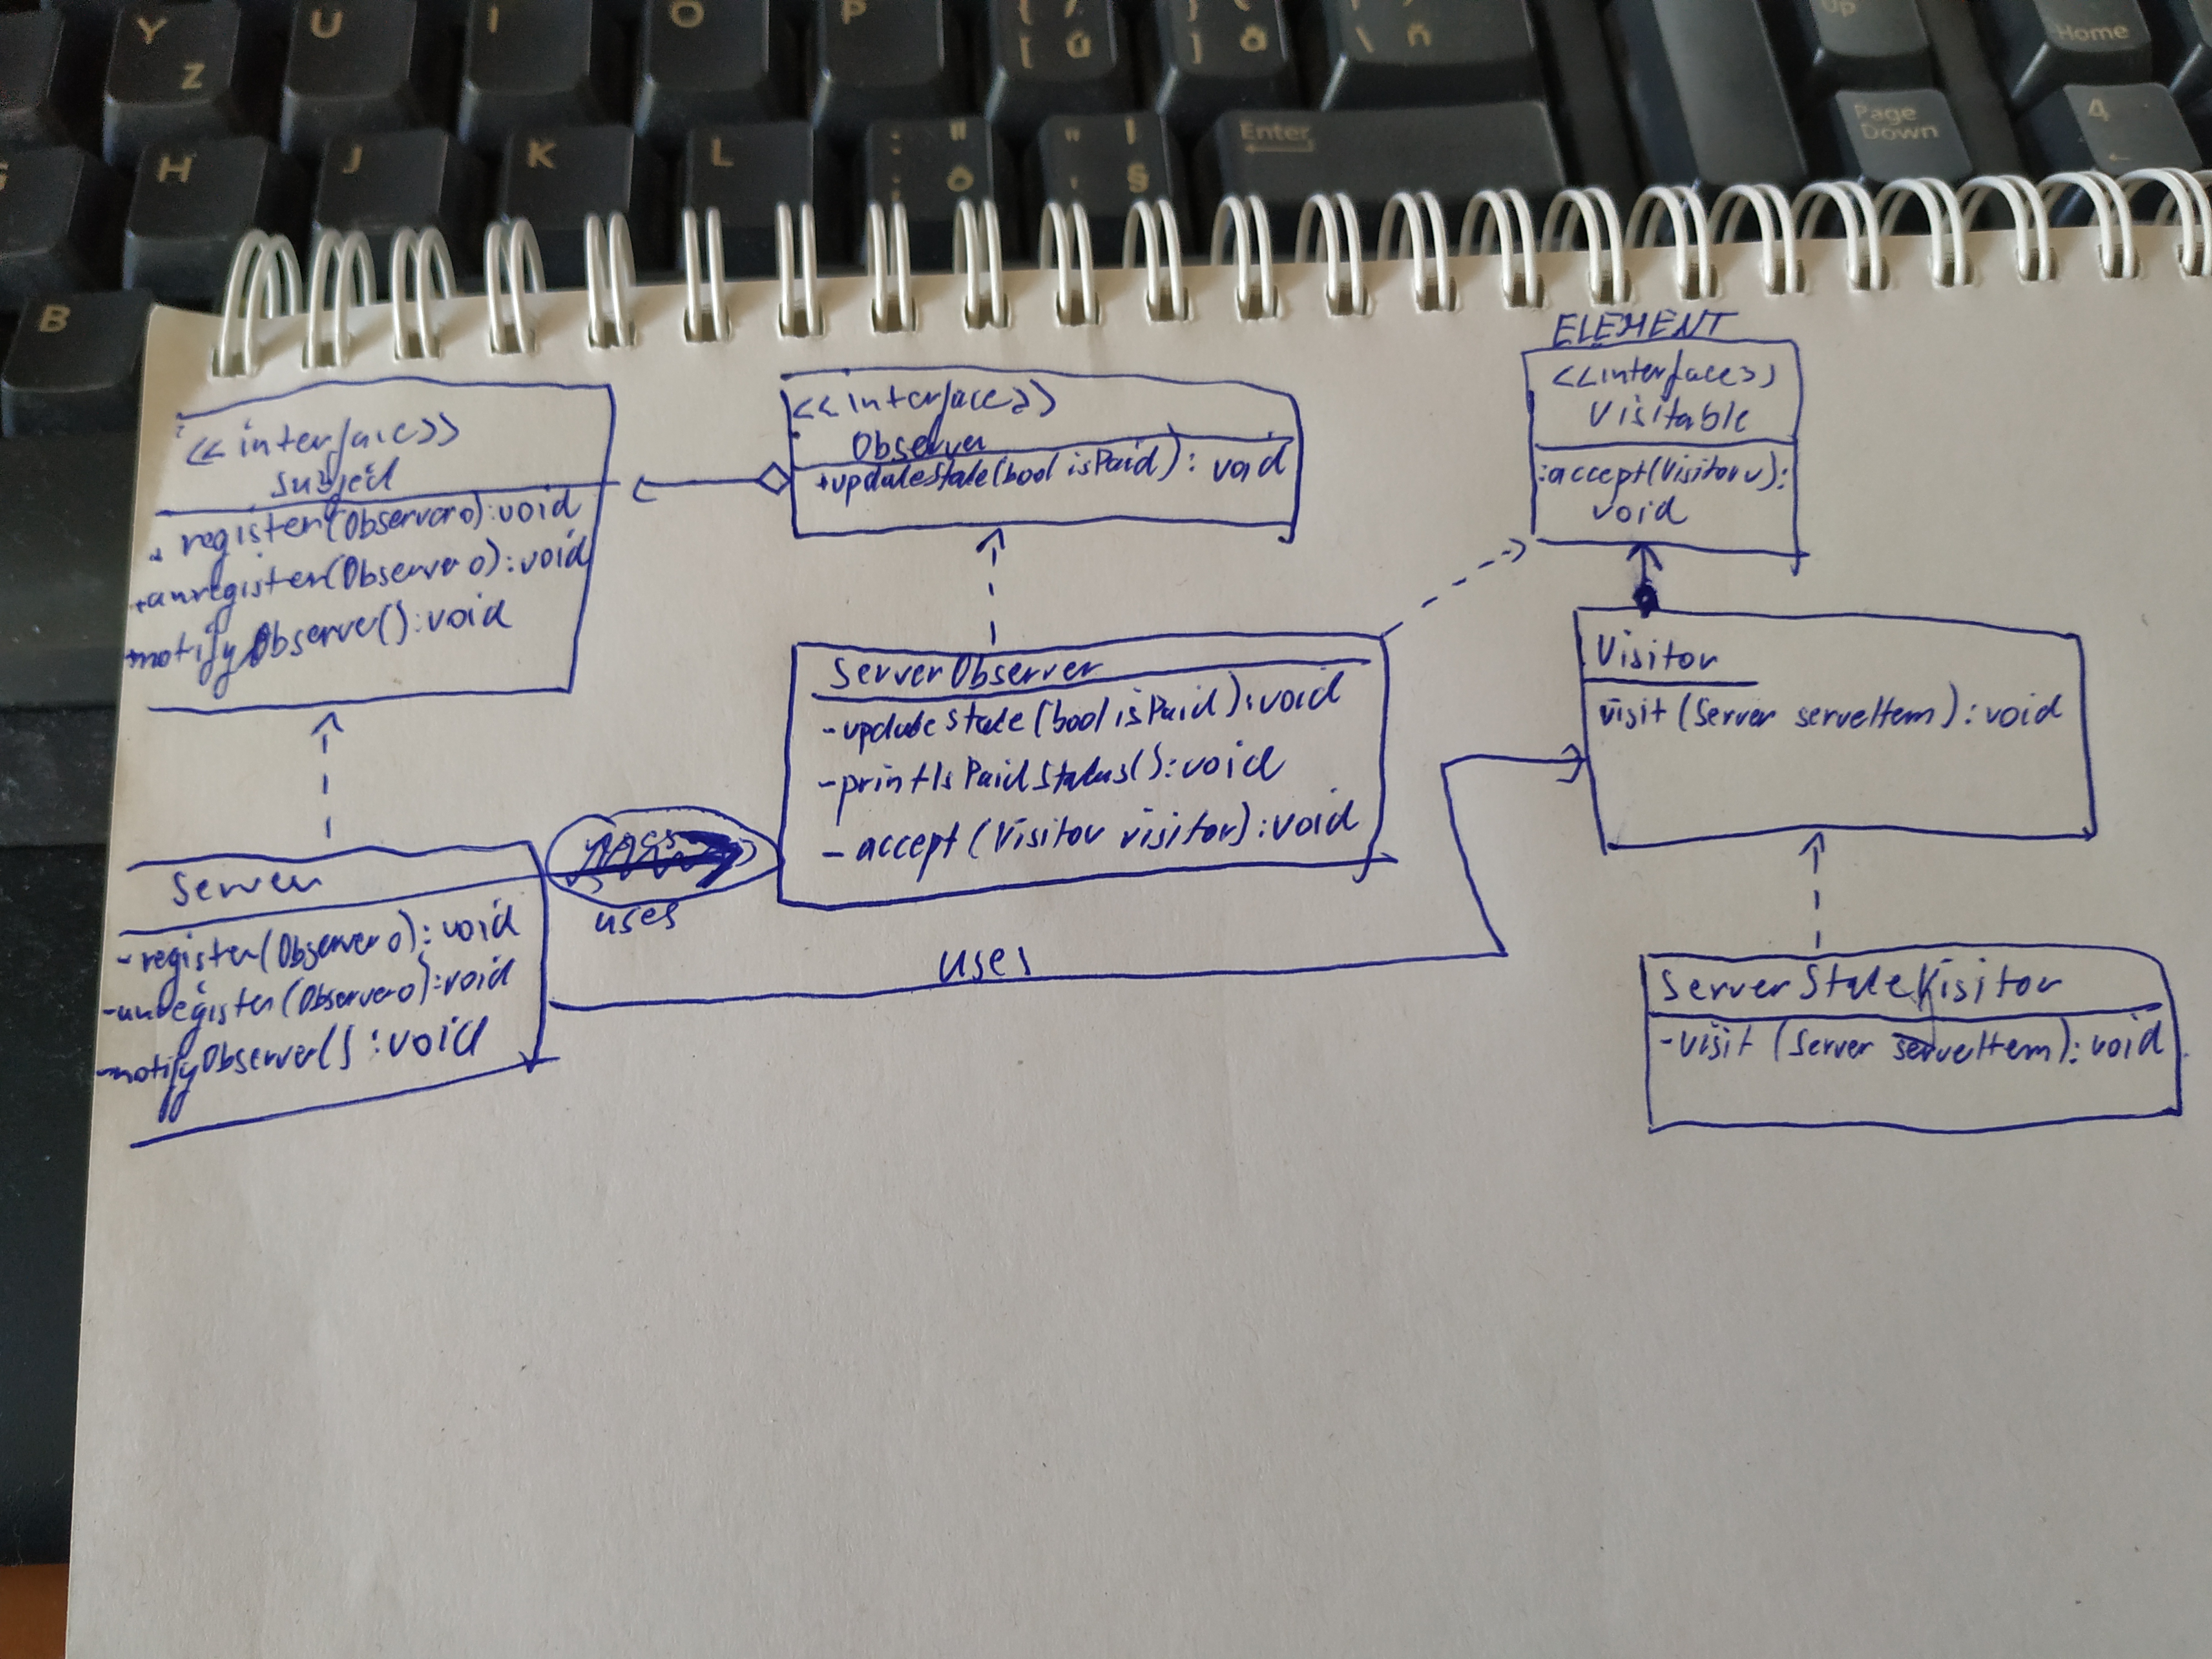 Y
Z
U
I
O
P
{ /
[ ú
} (
] ö
\ ň
Up
Home
G
H
J
K
L
: "
; ô
" !
' §
Enter
Page
Down
4
←
B
<<interface>>
Subject
+ register(Observer o): void
+unregister(Observer o): void
+notifyObserver(): void
<<interface>>
Observer
+updateState(bool isPaid): void
ELEMENT
<<interface>>
Visitable
:accept(Visitor v):
void
ServerObserver
-updateState(bool isPaid): void
-printIsPaidStatus(): void
- accept (Visitor visitor): void
Visitor
visit (Server serveItem): void
Server
-register(Observer o): void
-unregister(Observer o): void
-notifyObserver() : void
uses
uses
ServerStateVisitor
-visit (Server serveItem): void